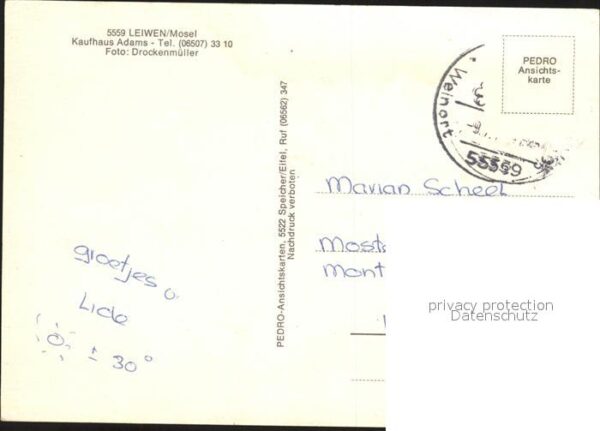 5559 LEIWEN/Mosel
Kaufhaus Adams - Tel. (06507) 33 10
Foto: Drockenmüller
PEDRO
Ansichts-
karte
Weinort
55559
PEDRO-Ansichtskarten, 5522 Speicher/Eifel, Ruf (06562) 347
Nachdruck verboten
Marian Scheel
Most
Mont
groetjes
Lide
± 30°
privacy protection
Datenschutz